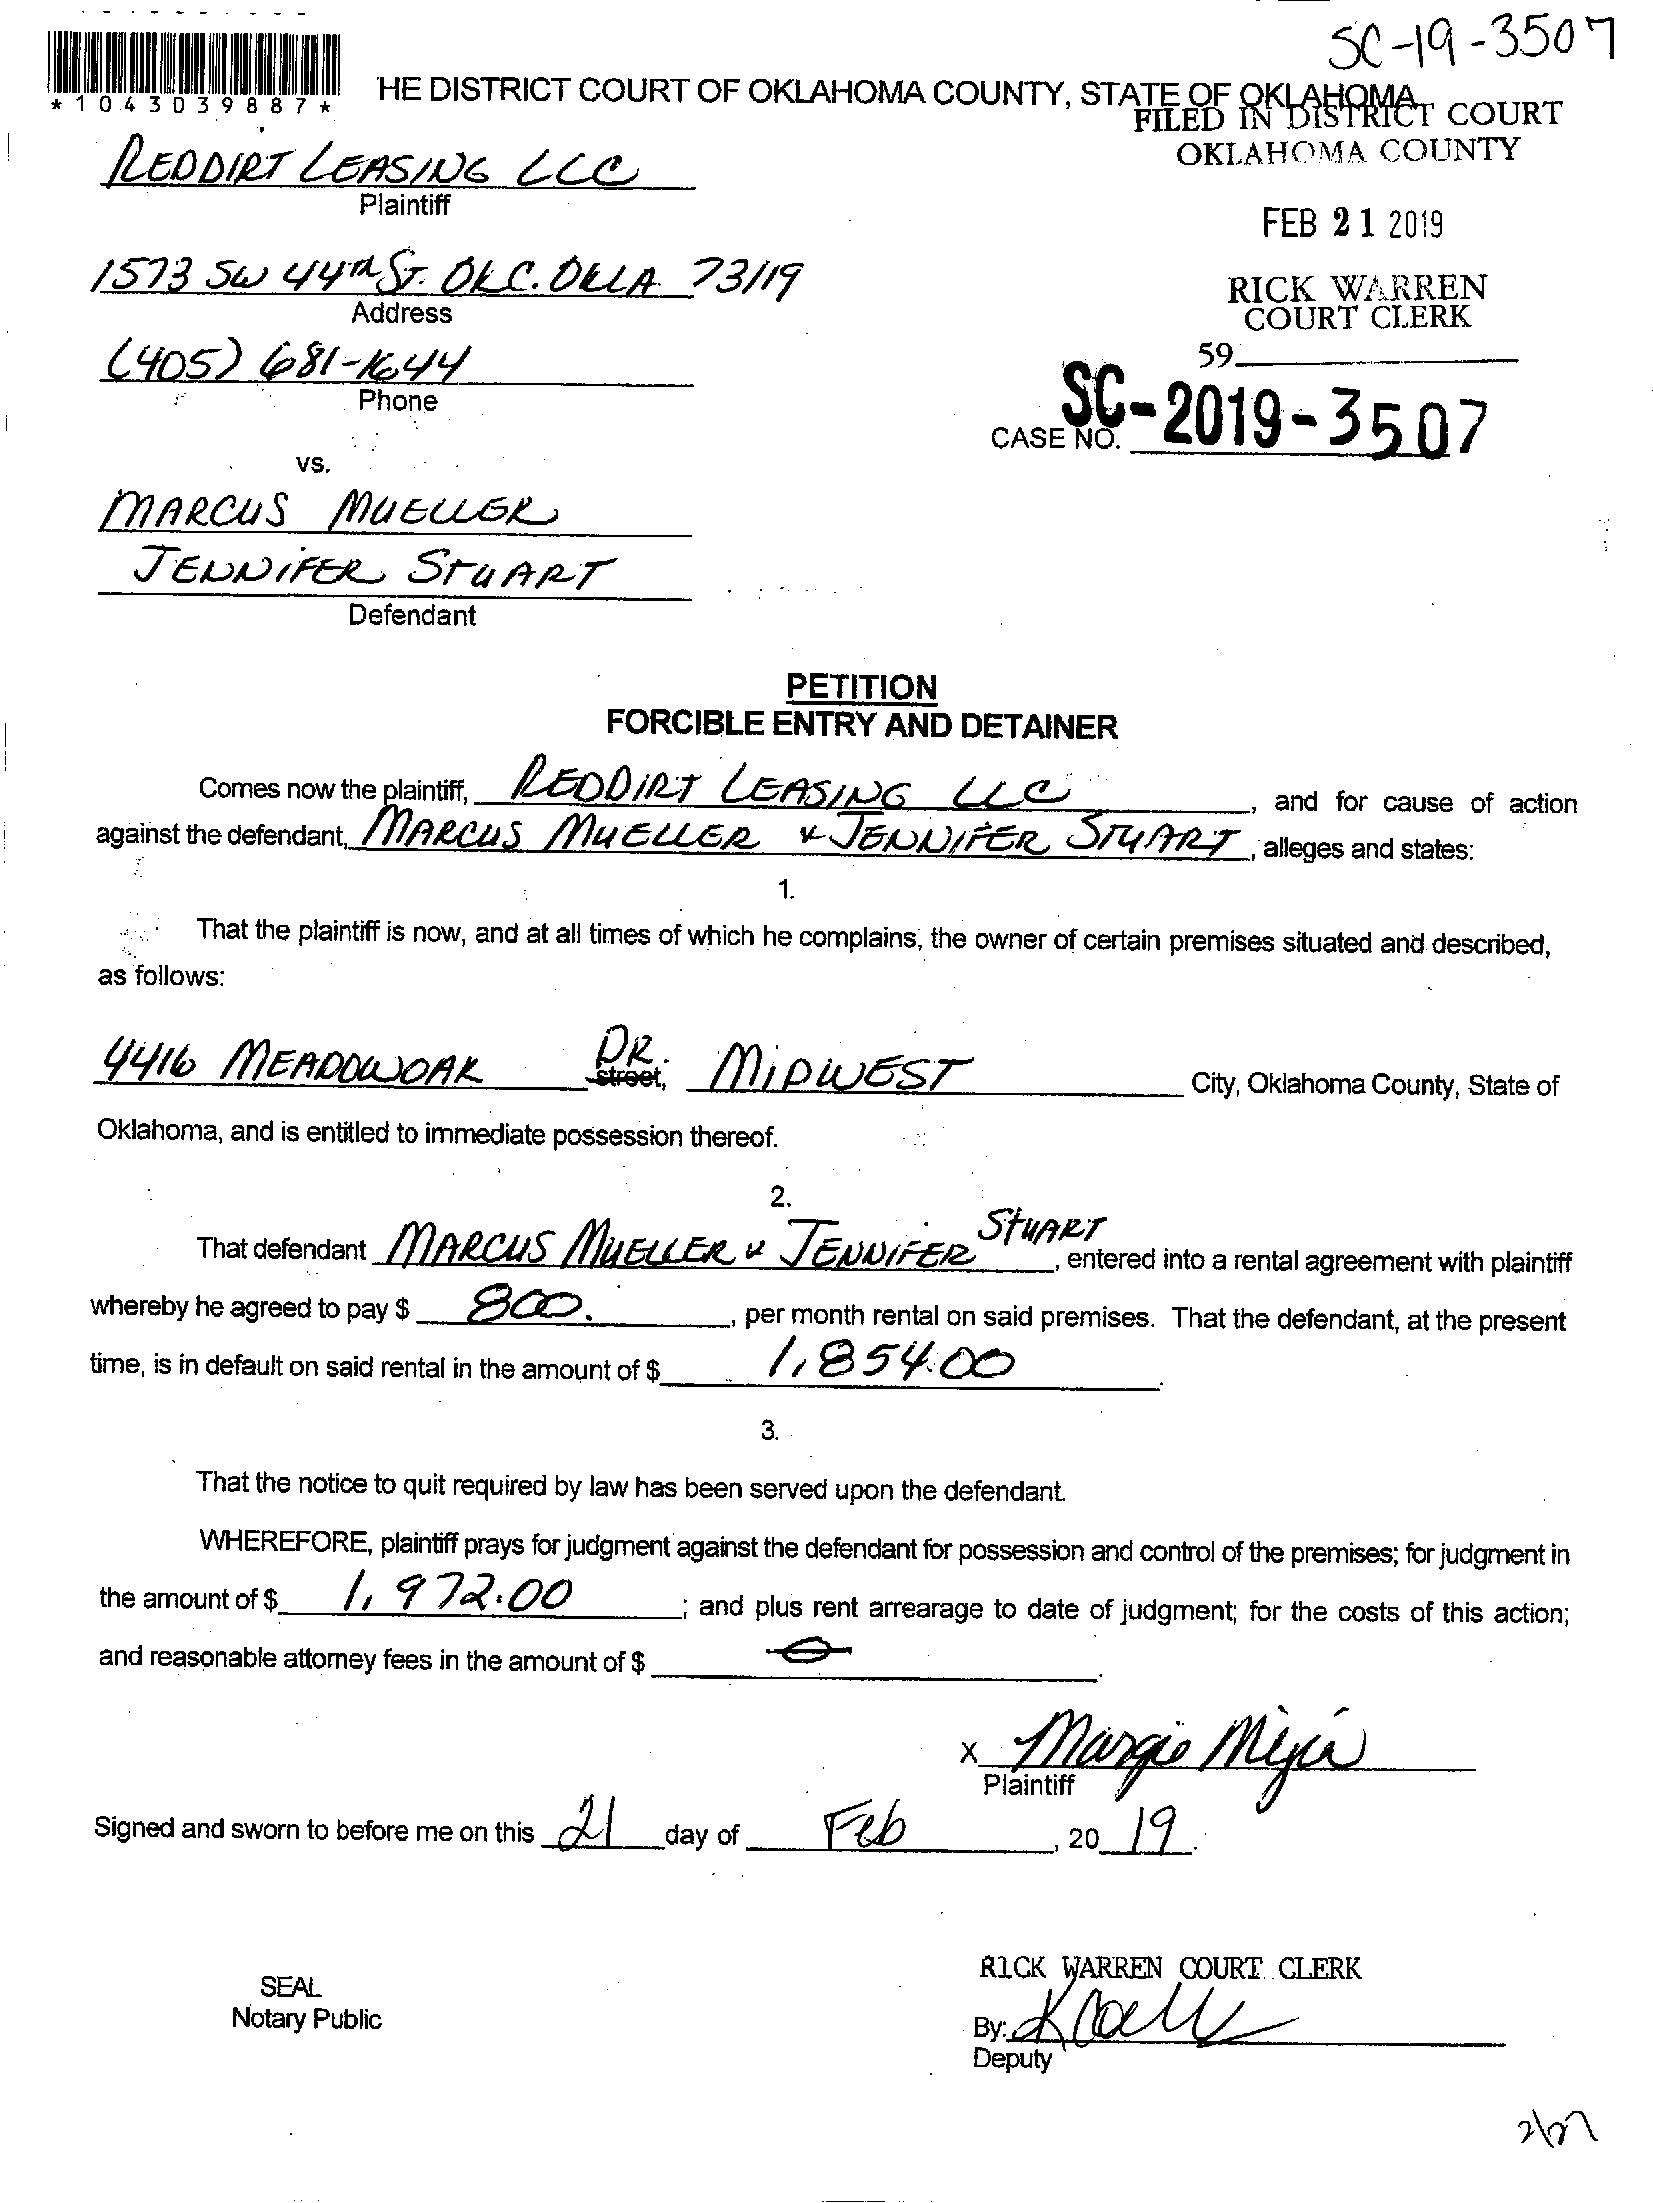 SC-19-3507
*1043039887*
HE DISTRICT COURT OF OKLAHOMA COUNTY, STATE OF OKLAHOMA
FILED IN DISTRICT COURT
OKLAHOMA COUNTY
REDDIRT LEASING LLC
Plaintiff
FEB 21 2019
1573 SW 44TH ST. OKC. OKLA 73119
Address
RICK WARREN
COURT CLERK
(405) 681-1644
Phone
59
CASE NO. SC-2019-3507
vs.
MARCUS MUELLER
JENNIFER STUART
Defendant
PETITION
FORCIBLE ENTRY AND DETAINER
Comes now the plaintiff, REDDIRT LEASING LLC, and for cause of action
against the defendant, MARCUS MUELLER & JENNIFER STUART, alleges and states:
1.
That the plaintiff is now, and at all times of which he complains, the owner of certain premises situated and described,
as follows:
4416 MEADOWOAK DR. street, MIDWEST City, Oklahoma County, State of
Oklahoma, and is entitled to immediate possession thereof.
2.
That defendant MARCUS MUELLER & JENNIFER STUART, entered into a rental agreement with plaintiff
whereby he agreed to pay $ 800. , per month rental on said premises. That the defendant, at the present
time, is in default on said rental in the amount of $ 1,854.00.
3.
That the notice to quit required by law has been served upon the defendant.
WHEREFORE, plaintiff prays for judgment against the defendant for possession and control of the premises; for judgment in
the amount of $ 1,972.00 ; and plus rent arrearage to date of judgment; for the costs of this action;
and reasonable attorney fees in the amount of $ 0.
X Margie Mejia
Plaintiff
Signed and sworn to before me on this 21 day of Feb, 20 19.
RICK WARREN COURT CLERK
SEAL
Notary Public
By:
Deputy
2/27